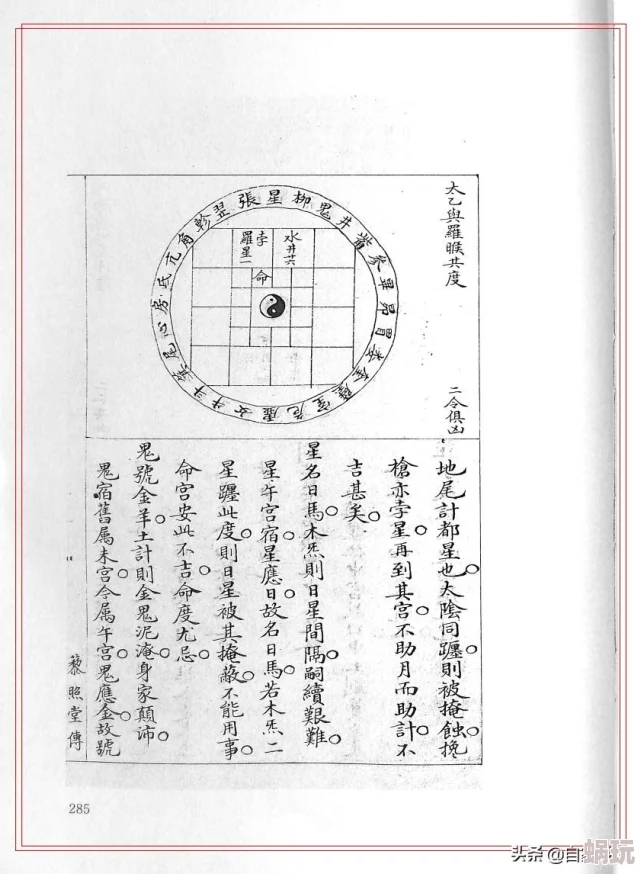 太乙與羅睺共度
二令俱凶
張星柳鬼井觜參畢昴胃婁奎壁室危虛女牛斗箕尾心房氐亢角軫翌
水井廿六
孛
羅星一
命
地尾計都星也。太陰同躔。則被掩蝕。攙
槍亦孛星。再到其宮。不助月而助計。不
吉甚矣。
星名日馬。木炁則日星間隔。嗣續艱難。
星午宮宿。星應日。故名日馬。若木炁二
星躔此度。則日星被其掩蔽。不能用事。
命宮安此不吉。命度尤忌。
鬼號金羊。土計則金鬼泥淹。身家顛沛。
鬼宿舊属未宮。今属午宮。鬼應金。故號
藜照堂傳
285
头条 @自
蜗玩